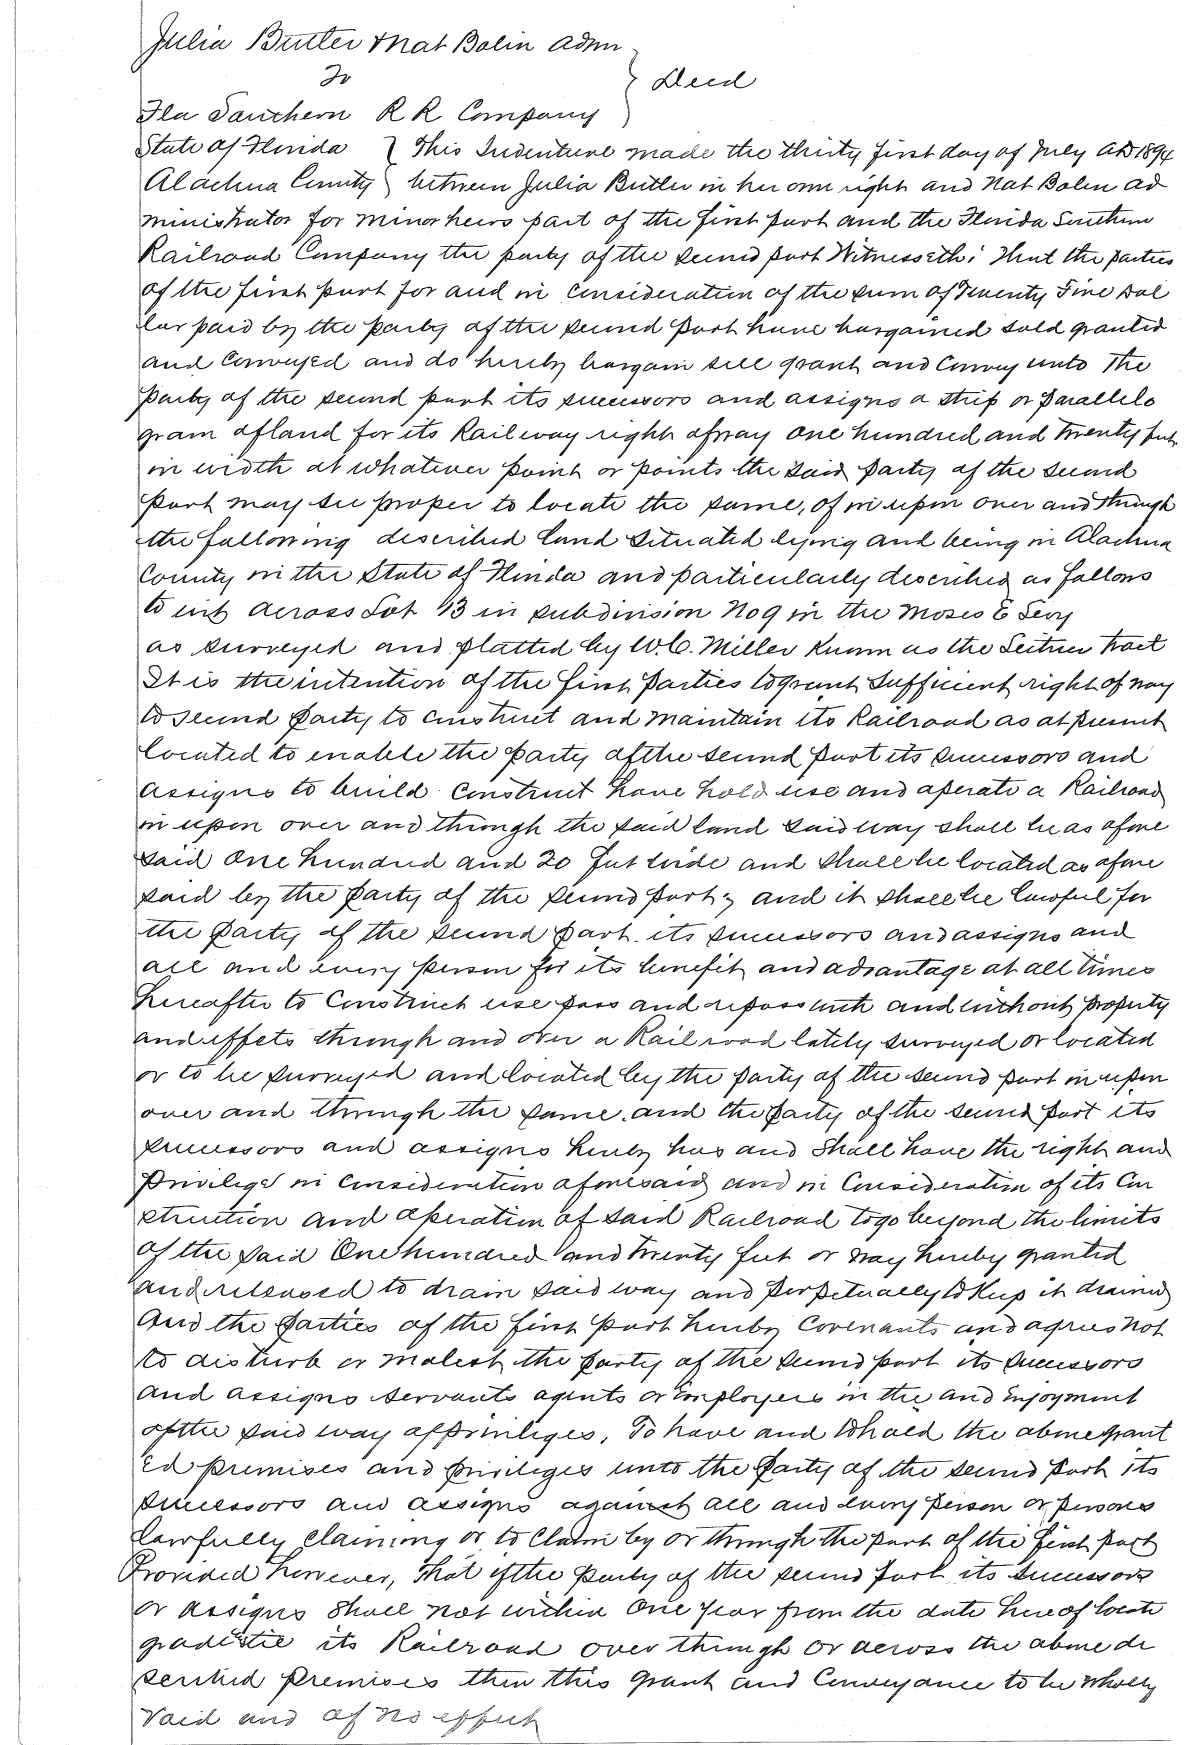 Julia Butler & Nat Bolin Admr
To } Deed
Fla Southern R R Company
State of Florida } This Indenture made the thirty first day of July AD 1894
Alachua County } between Julia Butler in her own right and Nat Bolin ad
ministrator for minor heirs part of the first part and the Florida Southern
Railroad Company the party of the second part Witnesseth: That the parties
of the first part for and in consideration of the sum of Twenty Five Dol
lar paid by the party of the second part have bargained sold granted
and conveyed and do hereby bargain sell grant and convey unto the
party of the second part its successors and assigns a strip or parallelo
gram of land for its Railway right of way one hundred and twenty feet
in width at whatever point or points the said party of the second
part may see proper to locate the same, of in upon over and through
the following described land situated lying and being in Alachua
County in the State of Florida and particularly described as follows
to wit across Lot 13 in subdivision No 9 in the Moses E Levy
as surveyed and platted by W.C. Miller Known as the Seitner tract
It is the intention of the first parties to grant sufficient right of way
to second party to construct and maintain its Railroad as at present
located to enable the party of the second part its successors and
assigns to build construct have hold use and operate a Railroad
in upon over and through the said land said way shall be as afore
said One hundred and 20 feet wide and shall be located as afore
said by the party of the second part; and it shall be lawful for
the party of the second part its successors and assigns and
all and every person for its benefit and advantage at all times
hereafter to construct use pass and repass with and without property
and effets through and over a Railroad lately surveyed or located
or to be surveyed and located by the party of the second part in upon
over and through the same and the party of the second part its
successors and assigns hereby has and shall have the right and
privilege in consideration aforesaid and in consideration of its con
struction and operation of said Railroad to go beyond the limits
of the said One hundred and twenty feet or way hereby granted
and released to drain said way and perpetually to keep it drained
And the parties of the first part hereby covenants and agrees not
to disturb or molest the party of the second part its successors
and assigns servants agents or employees in the and enjoyment
of the said way of privileges, To have and to hold the above grant
ed premises and privileges unto the party of the second part its
successors and assigns against all and every person or persons
lawfully claiming or to claim by or through the part of the first part
Provided however, That if the party of the second part its successors
or assigns shall not within One year from the date hereof locate
grade its Railroad over through or across the above de
scribed premises then this grant and conveyance to be wholly
void and of no effect